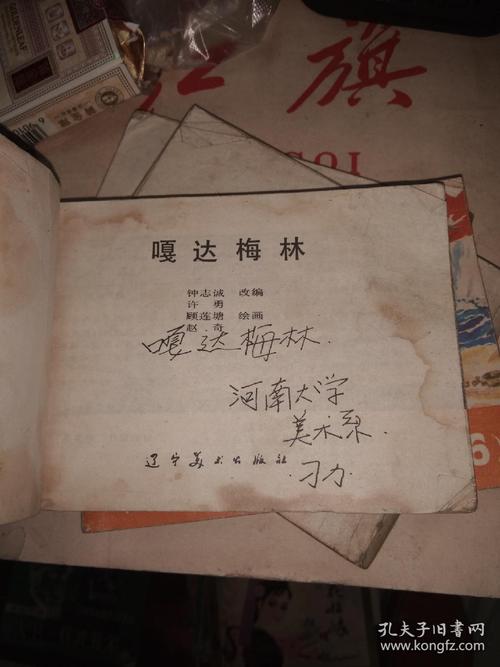 GOLDENLEAF
红旗
嘎达梅林
钟志诚 改编
许勇
顾莲塘 绘画
赵奇
嘎达梅林.
河南大学
美术系.
辽宁美术出版社
刁力.
6
孔夫子旧书网
www.kongfz.com